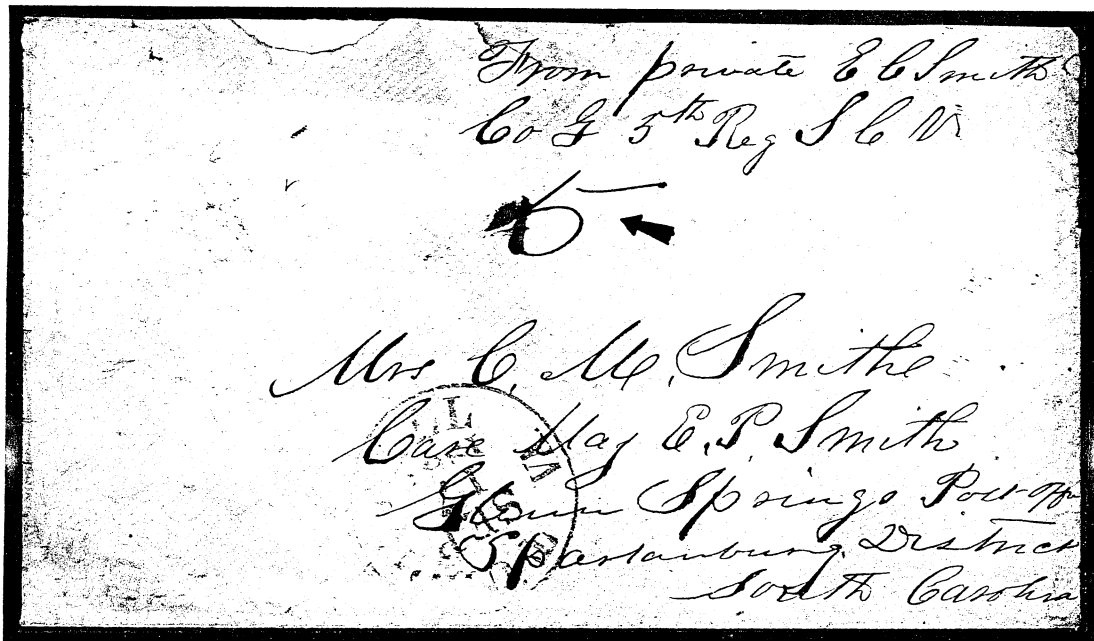 From private E C Smith
Co G 5th Reg S C V
5
Mrs C. M. Smithe
Care Maj E. P. Smith
Glenn Springs Post Offi
Spartanburg District
South Carolina